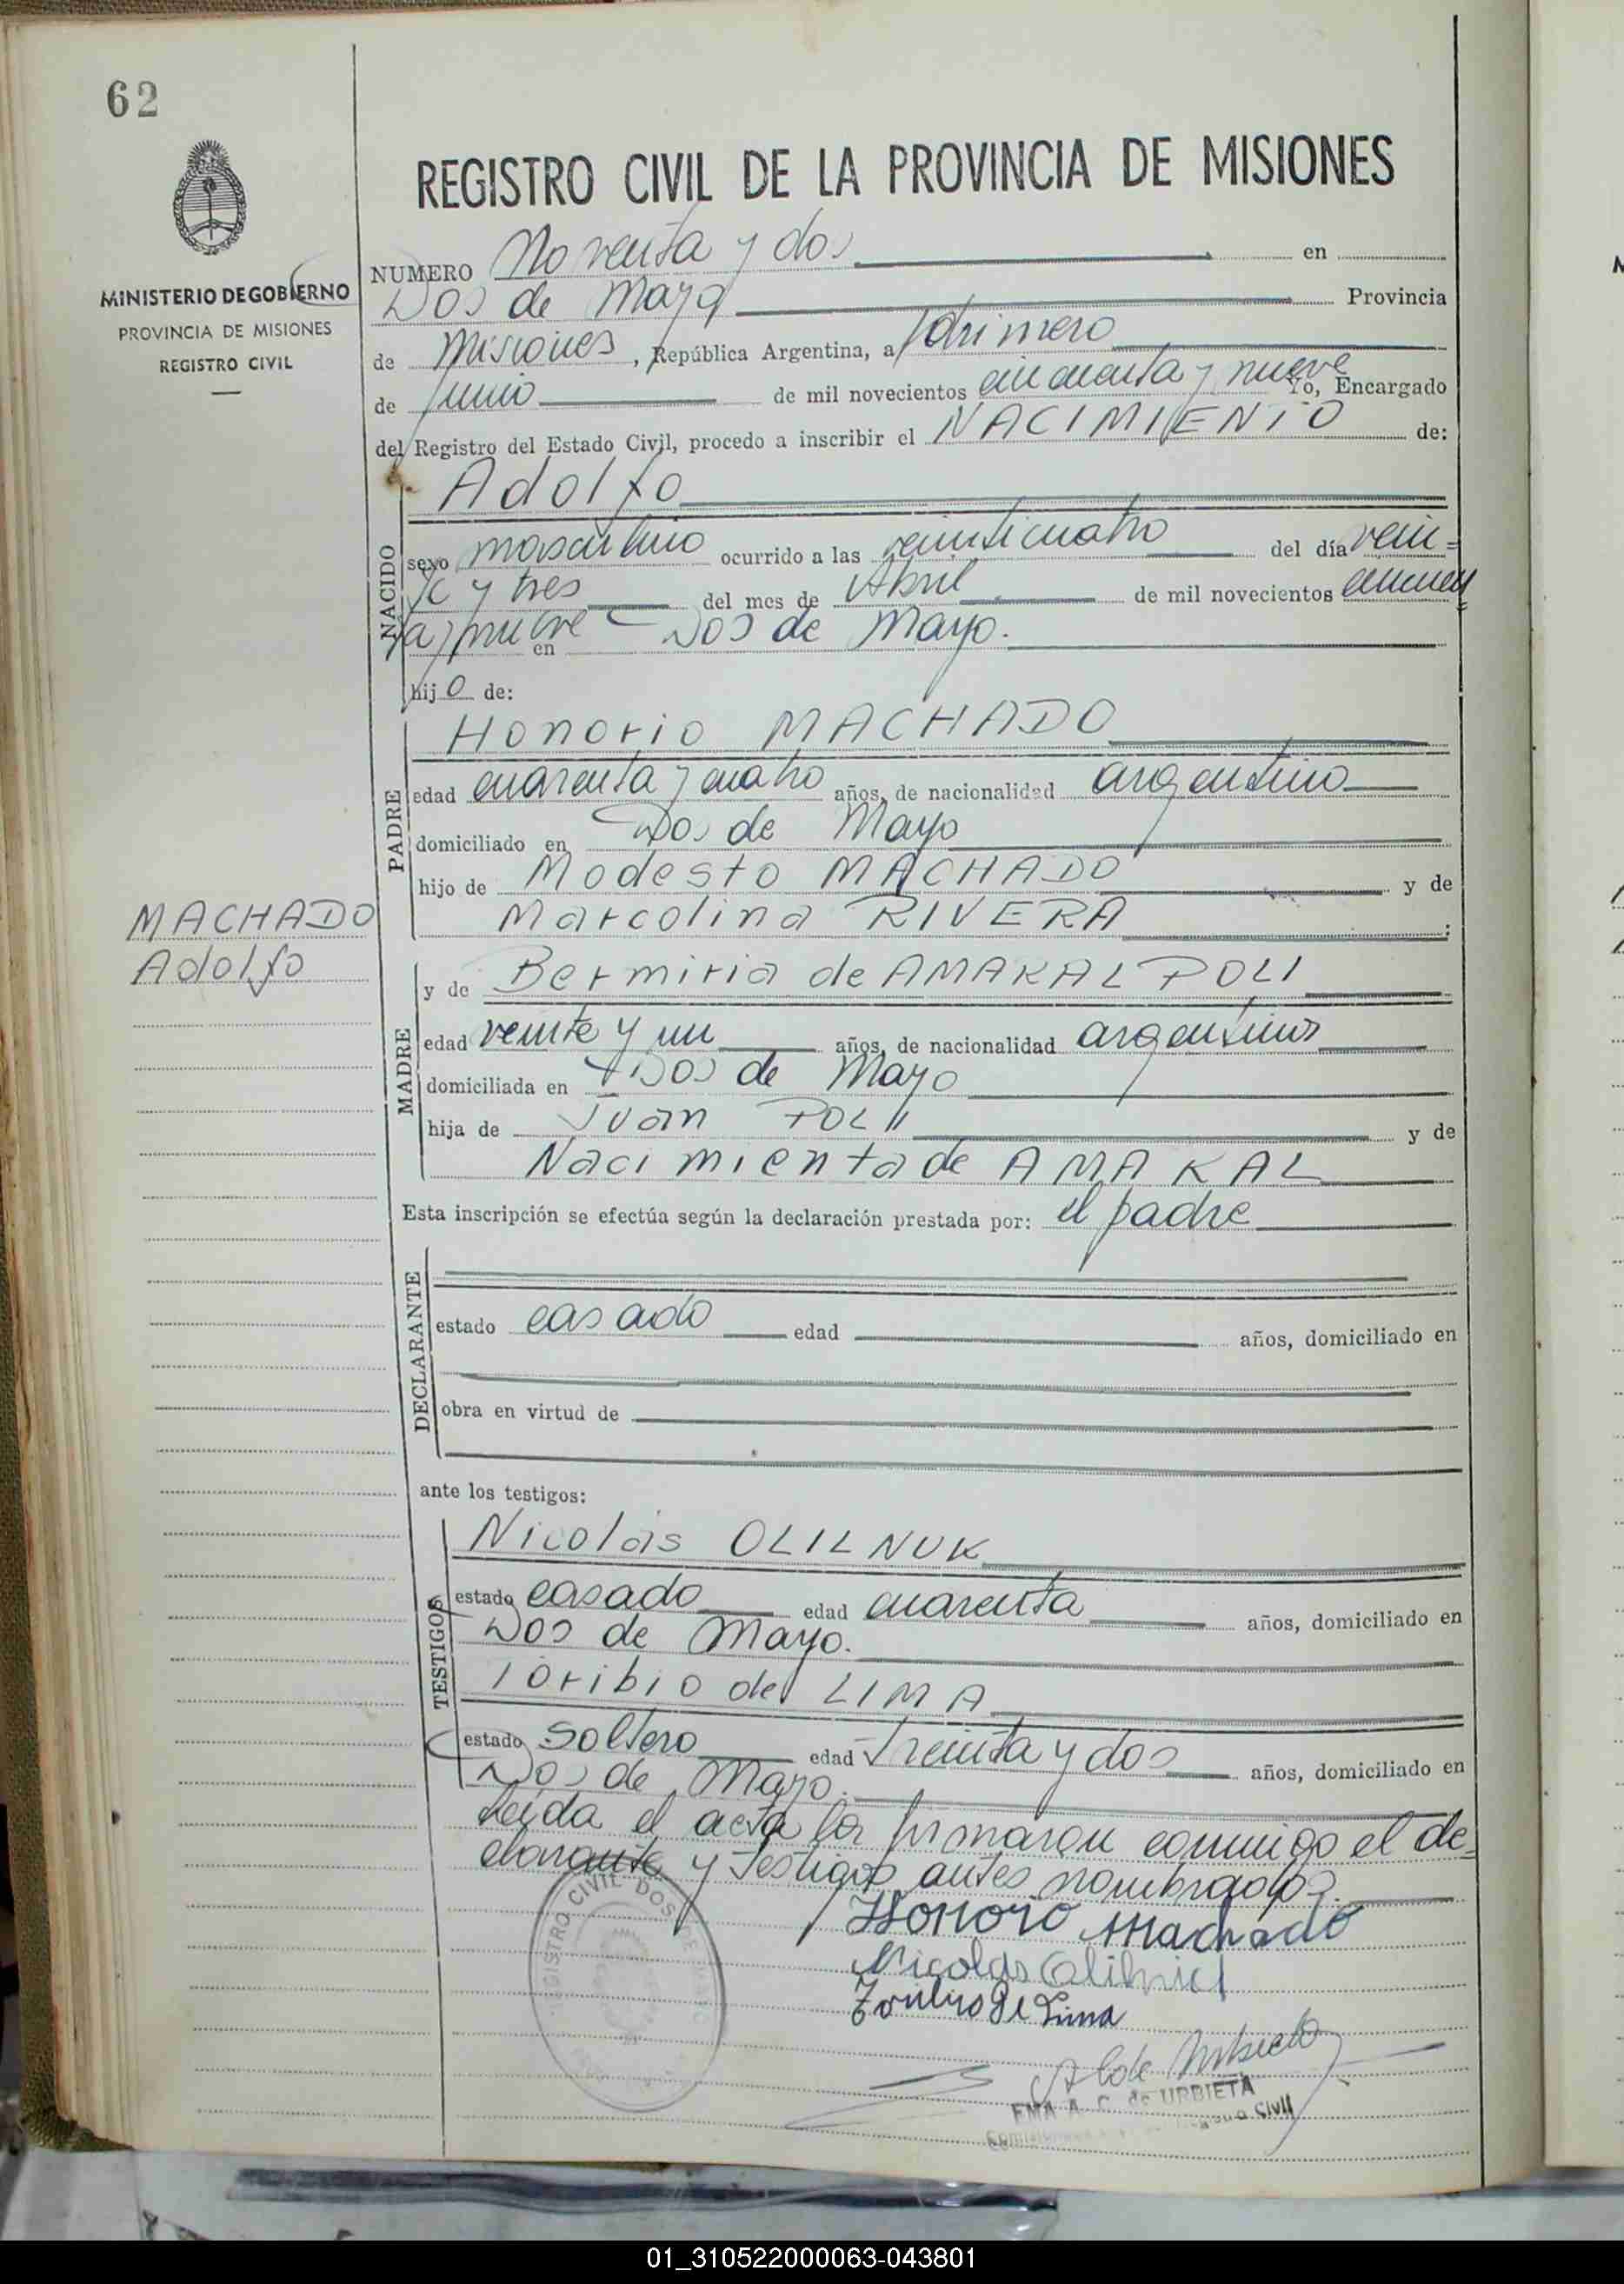 62
MINISTERIO DE GOBIERNO
PROVINCIA DE MISIONES
REGISTRO CIVIL
REGISTRO CIVIL DE LA PROVINCIA DE MISIONES
NUMERO Noventa y dos en
Dos de Mayo Provincia
de Misiones, República Argentina, a primero
de Junio de mil novecientos cincuenta y nueve Yo, Encargado
del Registro del Estado Civil, procedo a inscribir el NACIMIENTO de:
Adolfo
NACIDO
sexo masculino ocurrido a las veinticuatro del día vein=
te y tres del mes de Abril de mil novecientos cincuen=
ta y nueve en Dos de Mayo.
hijo de:
PADRE
Honorio MACHADO
edad cuarenta y cuatro años, de nacionalidad argentino
domiciliado en Dos de Mayo
hijo de Modesto MACHADO y de
Marcolina RIVERA;
MACHADO
Adolfo
MADRE
y de Bermiria de AMAKAL POLI
edad veinte y un años, de nacionalidad argentina
domiciliada en Dos de Mayo
hija de Juan POLI y de
Nacimienta de AMAKAL
Esta inscripción se efectúa según la declaración prestada por: el padre
DECLARANTE
estado casado edad años, domiciliado en
obra en virtud de
ante los testigos:
TESTIGOS
Nicolás OLILNUK
estado casado edad cuarenta años, domiciliado en
Dos de Mayo.
Toribio de LIMA
estado soltero edad treinta y dos años, domiciliado en
Dos de Mayo.
Leida el acta la firmaron conmigo el de=
clarante y testigos antes nombrados.
REGISTRO CIVIL DOS DE MAYO
Honorio Machado
Nicolas
Toribio de Lima
EMA A. C. de URBIETA
Civil
01_310522000063-043801